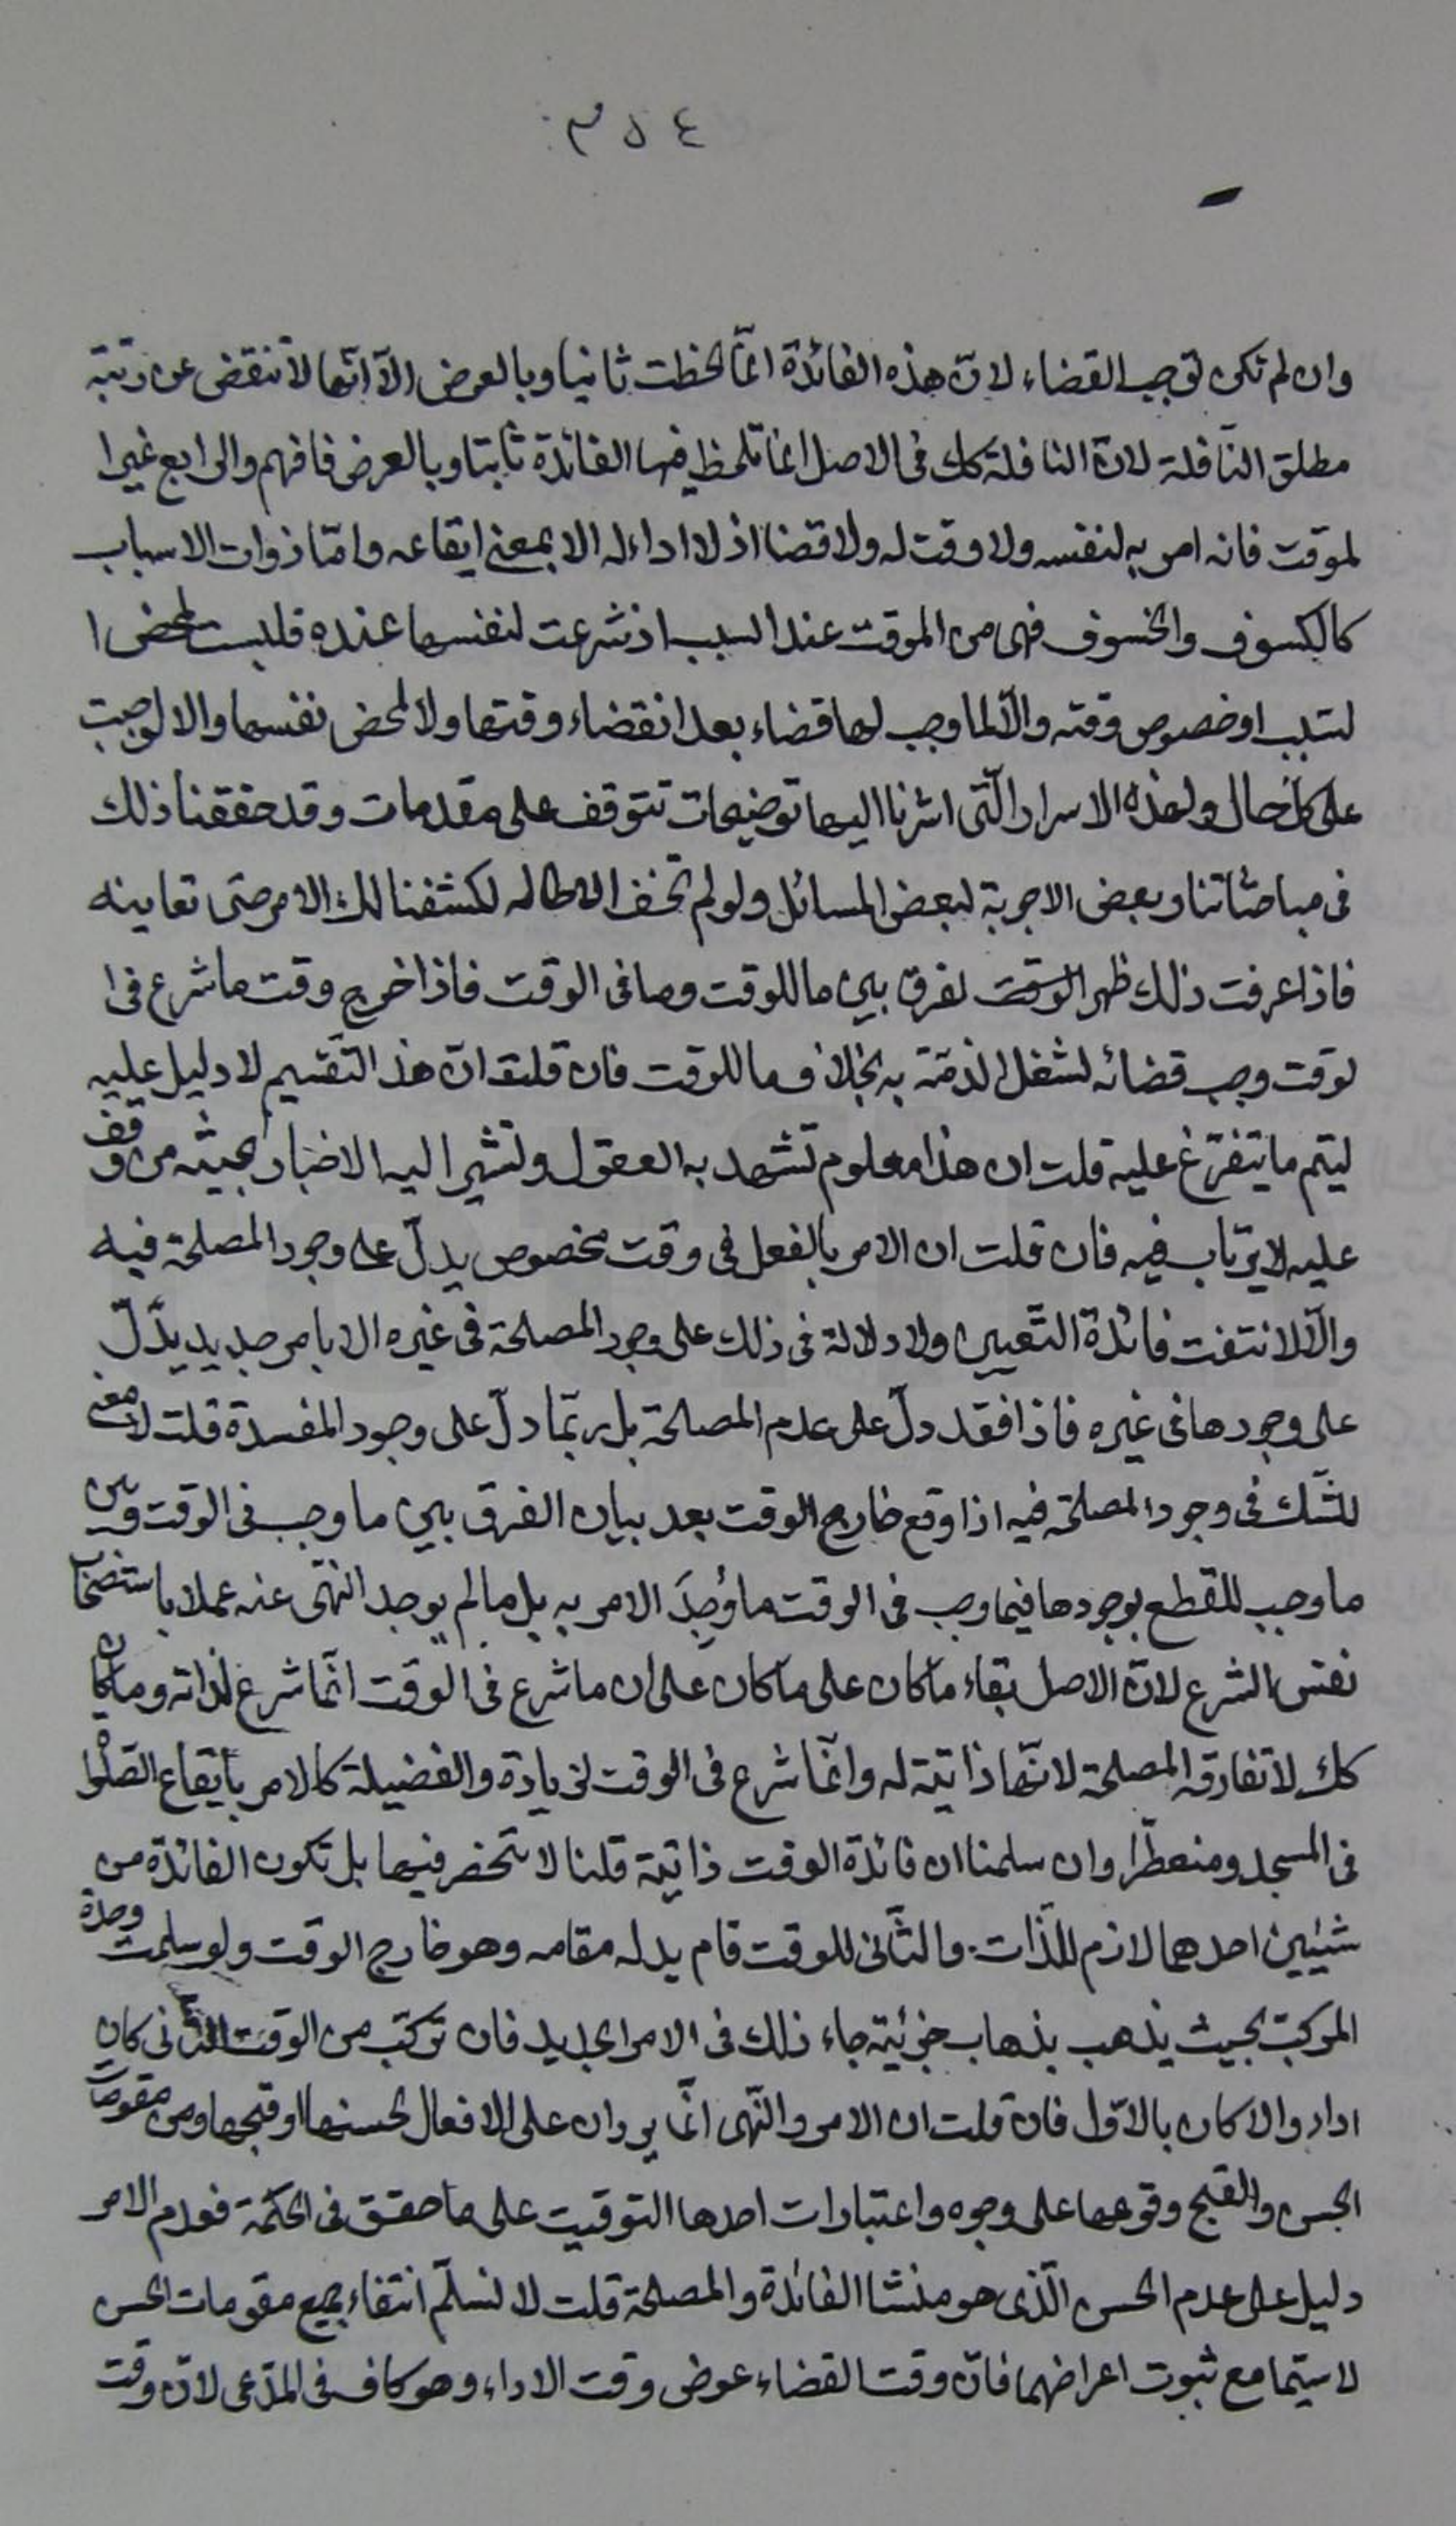 ٣٥٤
وان لم تكن توجب القضاء لان هذه الفائدة انما لحظت ثانيا وبالعرض الا انها لا تنقض عن رتبة
مطلق النافلة لان النافلة كك فى الاصل انما تلحظ فيها الفائدة ثانيا وبالعرض فافهم والرابع غير ا
لموقت فانه امر به لنفسه ولا وقت له ولا قضا اذ لا اداء له الا بمعنى ايقاعه وامّا ذوات الاسباب
كالكسوف والخسوف فهى من الموقت عند السبب اذ شرعت لنفسها عنده فليست لمحض ا
لسبب او خصوص وقته والّا لما وجب لها قضاء بعد انقضاء وقتها ولا لمحض نفسها والا لوجبت
على كل حال ولهذه الاسرار الّتى اشرنا اليها توضيحات تتوقف على مقدمات وقد حققنا ذلك
فى مباحثاتنا وبعض الاجوبة لبعض المسائل ولو لم نخف الاطاله لكشفنا لك الامر حتى تعاينه
فاذا عرفت ذلك ظهر الوقت لفرق بين ما للوقت وما فى الوقت فاذا خرج وقت ما شرع فى ا
لوقت وجب قضائه لشغل الذمّة به بخلاف ما للوقت فان قلت انّ هذ التقسيم لا دليل عليه
ليتم ما يتفرّع عليه قلت ان هذا معلوم تشهد به العقول وتشير اليه الاخبار بحيث من وقف
عليه لا يرتاب فيه فان قلت ان الامر بالفعل فى وقت مخصوص يدلّ على وجود المصلحة فيه
والّا لانتفت فائدة التّعيين ولا دلالة فى ذلك على وجود المصلحة فى غيره الا بامر جديد يدّلّ
على وجودها فى غيره فاذا فقد دلّ على عدم المصلحة بل ربّما دلّ على وجود المفسدة قلت لا معنى
للشّك فى وجود المصلحة فيه اذا وقع خارج الوقت بعد بيان الفرق بين ما وجب فى الوقت وبين
ما وجب للقطع بوجودها فيما وجب فى الوقت ما وُجِدَ الامر به بل ما لم يوجد النّهى عنه عملا باستصحاب
نفس الشرع لانّ الاصل بقاء ما كان على ما كان على ان ما شرع فى الوقت انّما شرع لذاته وما كان
كك لا تفارقه المصلحة لانّها ذاتية له وانّما شرع فى الوقت لزيادة والفضيلة كالامر بايقاع الصّلوة
فى المسجد ومتعطّرا وان سلمنا ان فائدة الوقت ذاتية قلنا لا تنحصر فيها بل تكون الفائدة من
شيئين احدهما لازم للّذات والثّانى للوقت قام بدله مقامه وهو خارج الوقت ولو سلمت وحدة
المركب بحيث يذهب بذهاب جزئية جاء ذلك فى الامر الجديد فان تركّب من الوقت الثّانى كان
اداء والا كان بالاوّل فان قلت ان الامر والنّهى انّما يردان على الافعال لحسنها او قبحها ومن مقومات
الحسن والقبح وقوعها على وجوه واعتبارات احدها التوقيت على ما حقق فى الحكمة فعدم الامر
دليل على عدم الحسن الّذى هو منشا الفائدة والمصلحة قلت لا نسلّم انتفاء جميع مقومات الحسن
لا سيّما مع ثبوت اعراضهما فانّ وقت القضاء عوض وقت الاداء وهو كاف فى المدّعى لانّ وقت